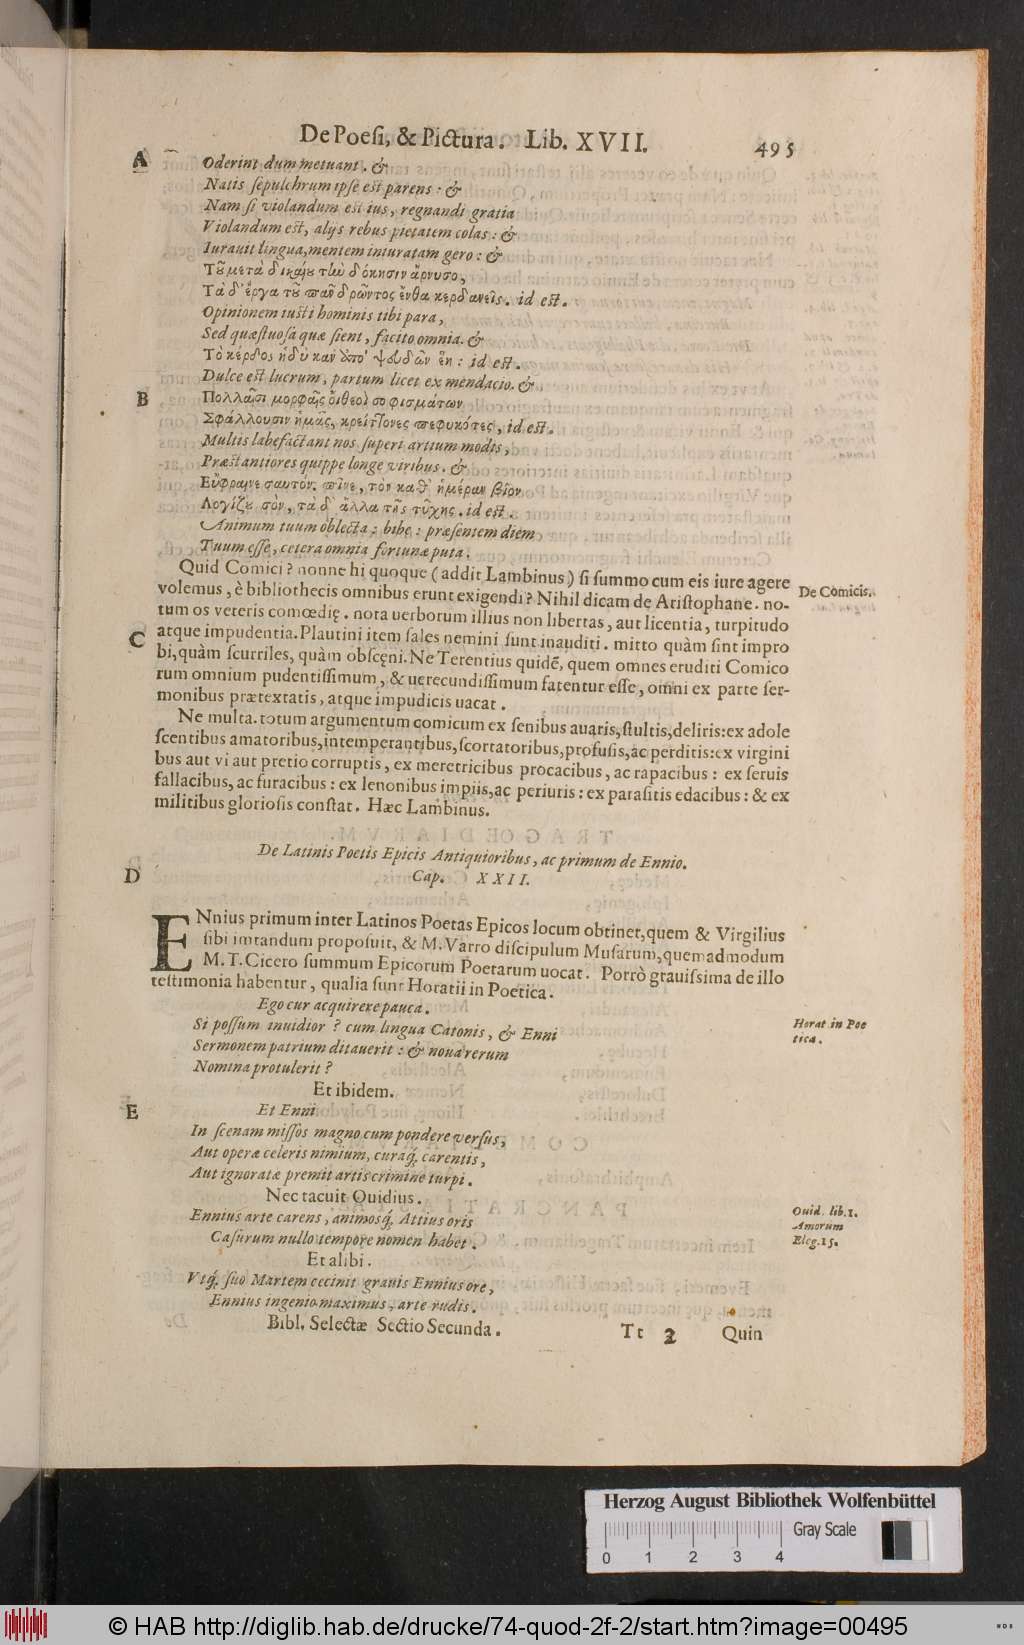 De Poesi, & Pictura. Lib. XVII. 495
A
Oderint dum metuant. &
Natis sepulchrum ipse est parens: &
Nam si violandum est ius, regnandi gratia
Violandum est, alijs rebus pietatem colas: &
Iurauit lingua, mentem iniuratam gero: &
Τοῦ μετὰ δικαίου τὼ δόκησιν ἄρνυσο,
Τὰ δ' ἔργα τοῦ πᾶν δρῶντος ἔνθα κερδανεῖς. id est.
Opinionem iusti hominis tibi para,
Sed quæstuosa quæ sient, facito omnia. &
Τὸ κέρδος ἡδὺ κἂν ἀπὸ ψευδῶν ἔη: id est.
Dulce est lucrum, partum licet ex mendacio. &
B
Πολλαῖσι μορφαῖς οἱ θεοὶ σοφισμάτων
Σφάλλουσιν ἡμᾶς, κρείττονες πεφυκότες, id est.
Multis labefactant nos superi artium modis,
Præstantiores quippe longe viribus. &
Εὔφραινε σαυτόν. πῖνε, τὸν καθ' ἡμέραν βίον
Λογίζου σὸν, τὰ δ' ἄλλα τῆς τύχης. id est.
Animum tuum oblecta: bibe: præsentem diem
Tuum esse, cetera omnia fortunæ puta.
Quid Comici? nonne hi quoque (addit Lambinus) si summo cum eis iure agere
volemus, è bibliothecis omnibus erunt exigendi? Nihil dicam de Aristophane. no-
De Comicis.
tum os veteris comœdię. nota uerborum illius non libertas, aut licentia, turpitudo
C
atque impudentia. Plautini item sales nemini sunt inauditi. mitto quàm sint impro
bi, quàm scurriles, quàm obscęni. Ne Terentius quidẽ, quem omnes eruditi Comico
rum omnium pudentissimum, & uerecundissimum fatentur esse, omni ex parte ser-
monibus prætextatis, atque impudicis uacat.
Ne multa. totum argumentum comicum ex senibus auaris, stultis, deliris: ex adole
scentibus amatoribus, intemperantibus, scortatoribus, profusis, ac perditis: ex virgini
bus aut vi aut pretio corruptis, ex meretricibus procacibus, ac rapacibus: ex seruis
fallacibus, ac furacibus: ex lenonibus impiis, ac periuris: ex parasitis edacibus: & ex
militibus gloriosis constat. Hæc Lambinus.
De Latinis Poetis Epicis Antiquioribus, ac primum de Ennio.
D
Cap. XXII.
ENnius primum inter Latinos Poetas Epicos locum obtinet, quem & Virgilius
sibi imitandum proposuit, & M. Varro discipulum Musarum, quemadmodum
M. T. Cicero summum Epicorum Poetarum uocat. Porrò grauissima de illo
testimonia habentur, qualia sunt Horatii in Poetica.
Ego cur acquirere pauca.
Si possum inuidior? cum lingua Catonis, & Enni
Horat. in Poe
tica.
Sermonem patrium ditauerit: & noua rerum
Nomina protulerit?
Et ibidem.
E
Et Enni
In scenam missos magno cum pondere versus,
Aut operæ celeris nimium, curaq́; carentis,
Aut ignoratæ premit artis crimine turpi.
Nec tacuit Ouidius.
Ennius arte carens, animosq́; Attius oris
Ouid. lib. 1.
Amorum
Eleg. 15.
Casurum nullo tempore nomen habet.
Et alibi.
Vtq́; suo Martem cecinit grauis Ennius ore,
Ennius ingenio maximus, arte rudis.
Bibl. Selectæ Sectio Secunda. Tt 2 Quin
Herzog August Bibliothek Wolfenbüttel
Gray Scale
0 1 2 3 4
© HAB http://diglib.hab.de/drucke/74-quod-2f-2/start.htm?image=00495